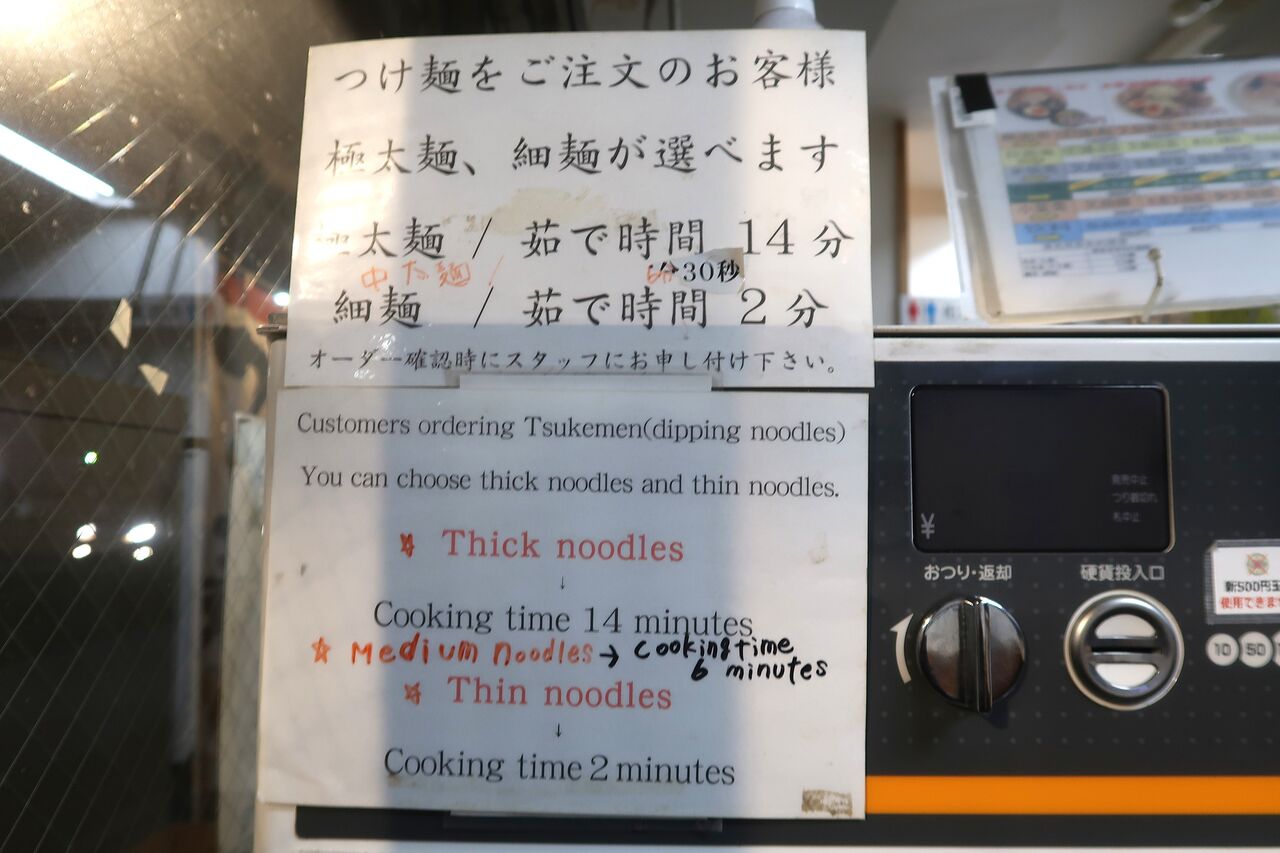 つけ麺をご注文のお客様
極太麺、細麺が選べます
極太麺 / 茹で時間 14分
中太麺 / 6分30秒
細麺 / 茹で時間 2分
オーダー確認時にスタッフにお申し付け下さい。
Customers ordering Tsukemen(dipping noodles)
You can choose thick noodles and thin noodles.
Thick noodles
↓
Cooking time 14 minutes
☆ Medium noodles → cooking time
6 minutes
Thin noodles
↓
Cooking time 2 minutes
発売中止
つり銭切れ
¥
おつり・返却
硬貨投入口
新500円玉
使用できま
10 50